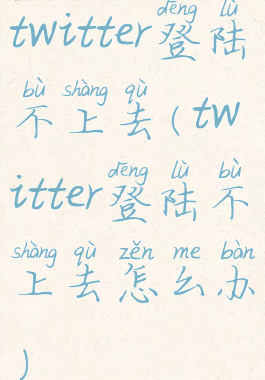 dēng lù
twitter登陆
bù shàng qù
不上去(tw
dēng lù bù
itter登陆不
shàng qù zěn me bàn
上去怎么办
)